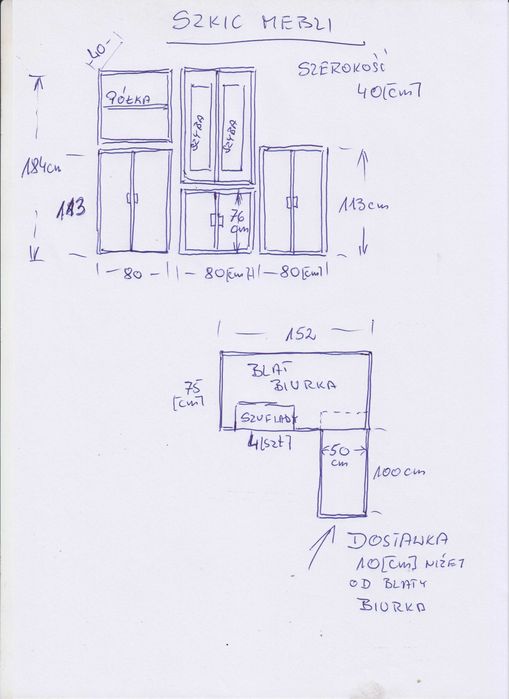 SZKIC MEBLI
40
SZEROKOŚĆ
40[cm]
PÓŁKA
SZYBA
SZYBA
184cm
113
76
cm
113cm
80
80[cm]
80[cm]
152
BLAT
BIURKA
75
[cm]
SZUFLADY
4[szt]
50
cm
100cm
DOSTAWKA
10[cm] NIŻEJ
OD BLATY
BIURKA